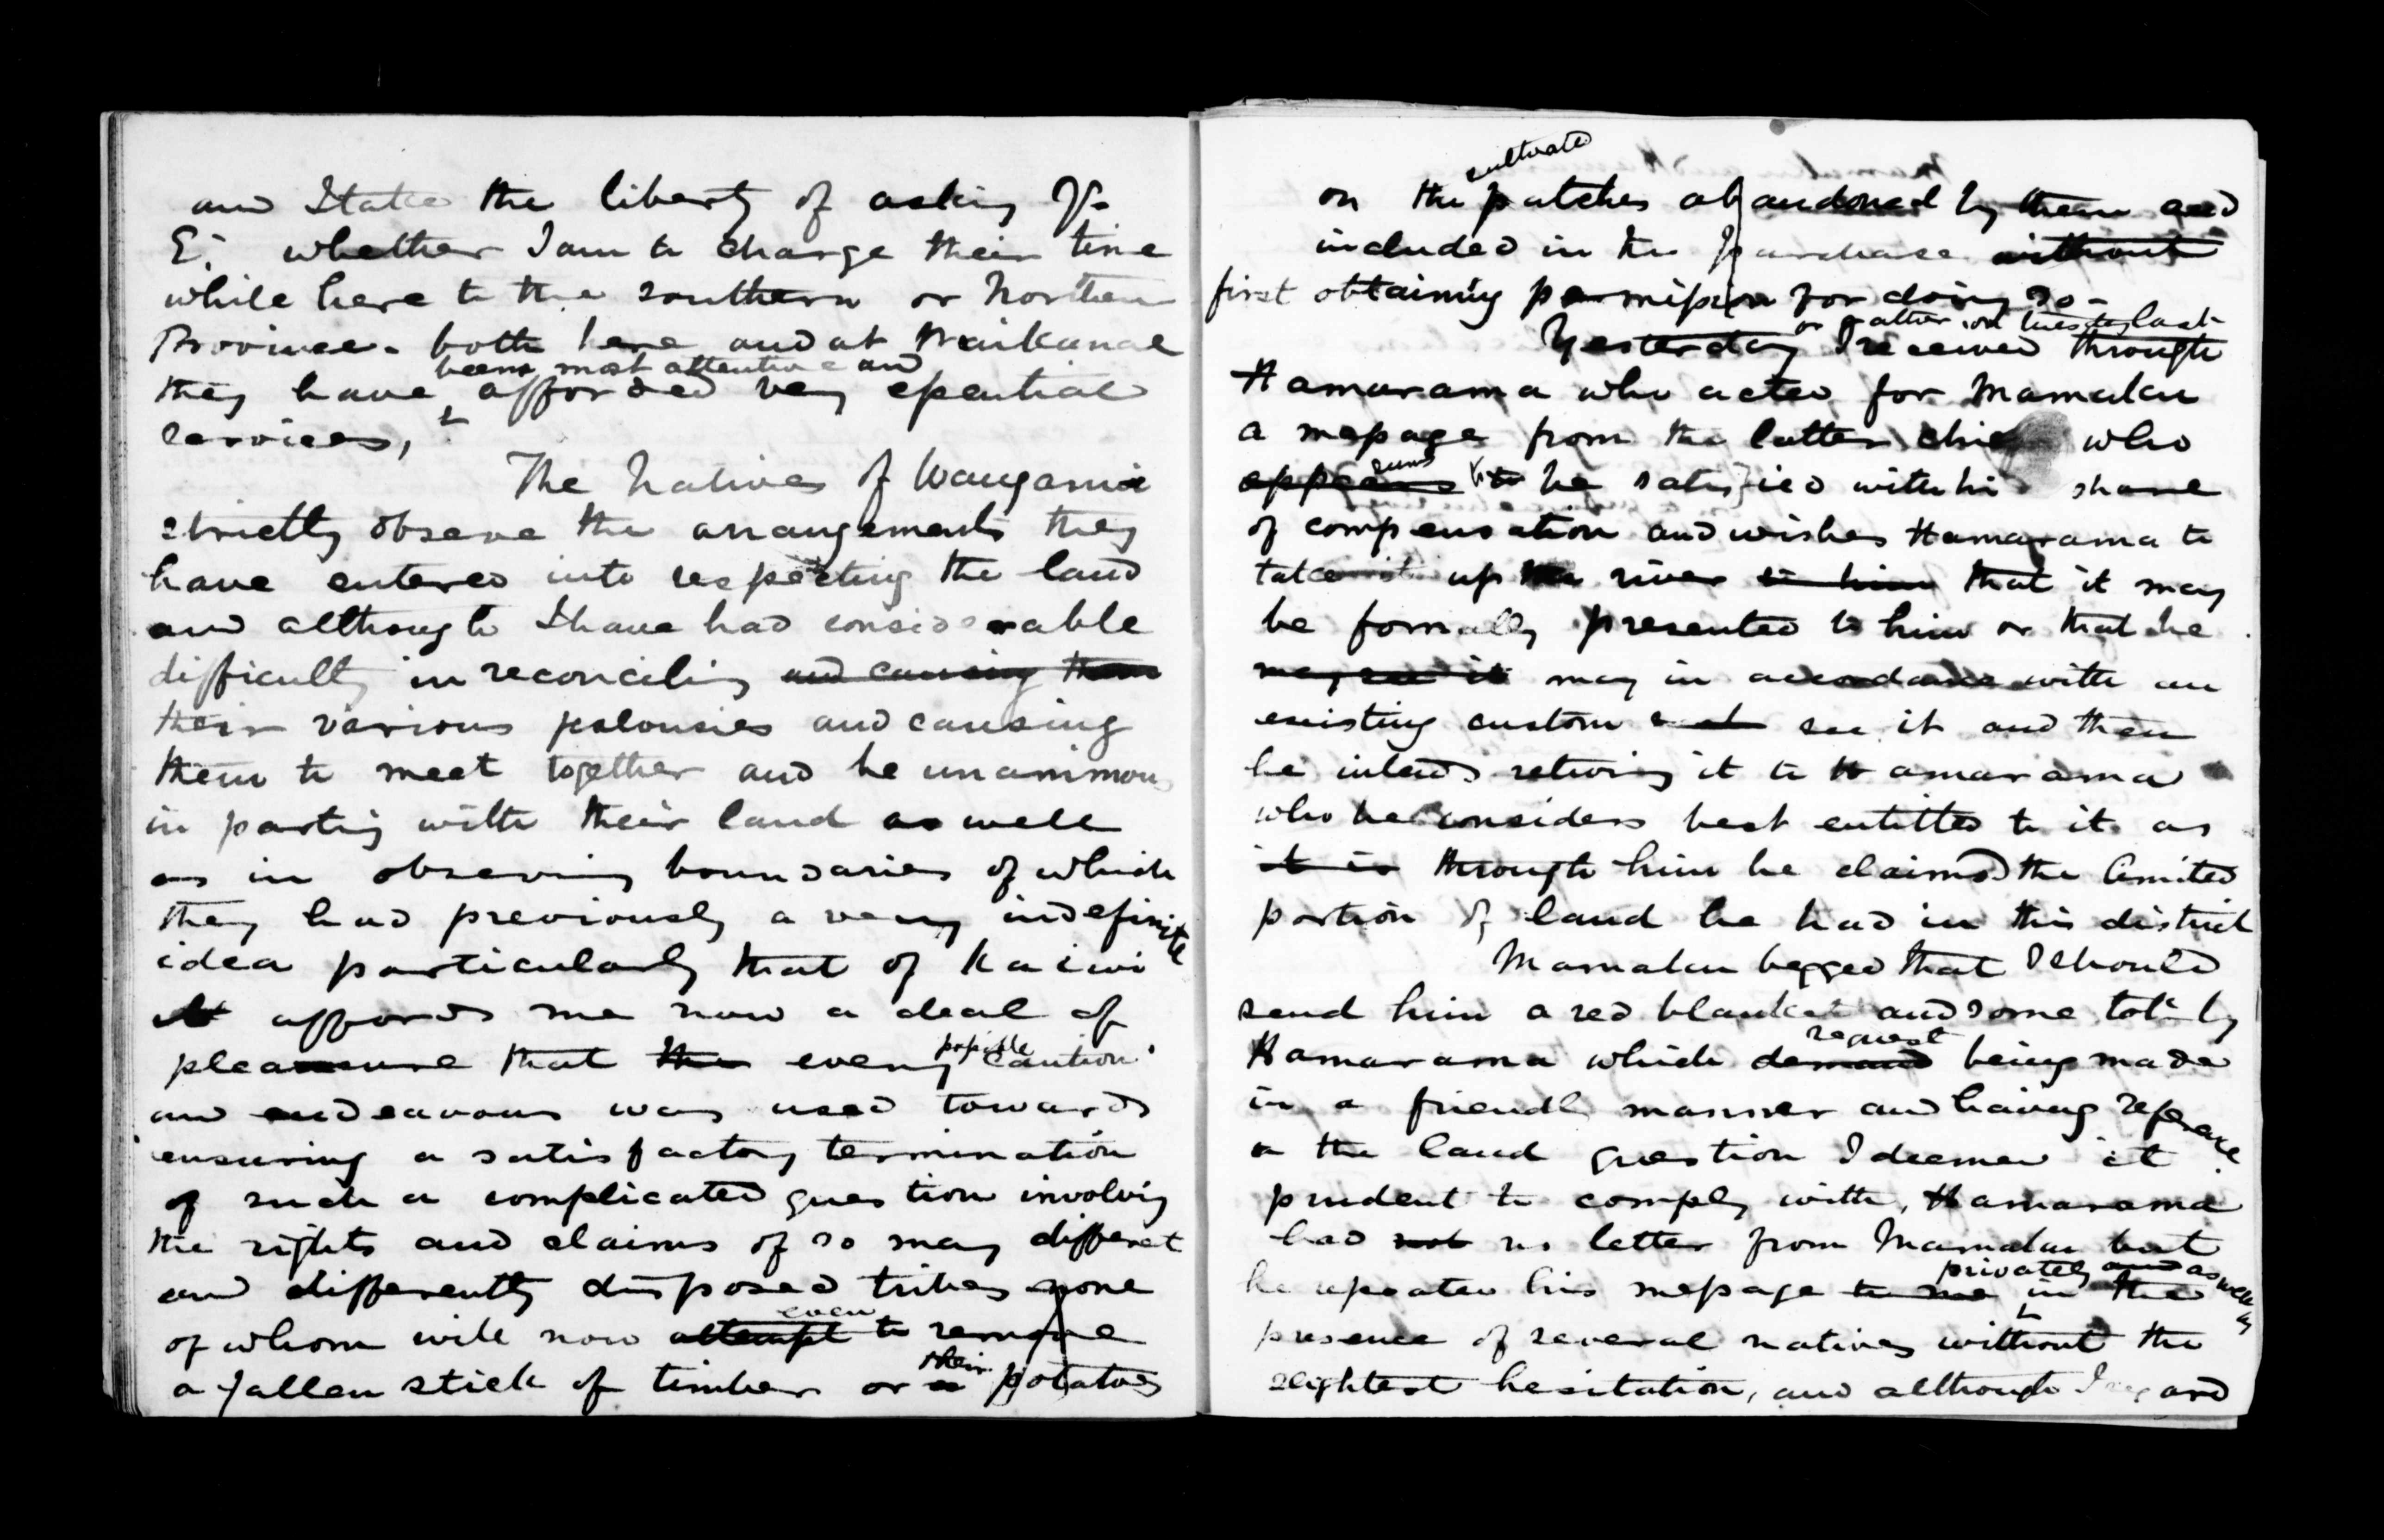 and I take the liberty of asking Yr
E. whether I am to charge their time
while here to the southern or Northern
Province. both here and at Waikanae
been most attentive and
they have afforded very essential
services,
The Natives of Wanganui
strictly observe the arrangements they
have entered into respecting the land
and although I have had considerable
difficulty in reconciling and causing them
their various jealousies and causing
them to meet together and be unanimous
in parting with their land as well
as in observing boundaries of which
they had previously a very indefinite
idea particularly that of Kaiwi
It affords me now a deal of
possible
pleasure that the every caution
and endeavour was used towards
ensuring a satisfactory termination
of such a complicated question involving
the rights and claims of so many different
and differently disposed tribes none
even
of whom will now attempt to remove
their
a fallen stick of timber or a potatoes
cultivate
on the patches abandoned by them and
included in the purchase without
first obtaining permission for doing so-
or rather on Tuesday last
Yesterday I received through
Hamarama who acted for Mamaku
a message from the latter chief who
seems
appears to be satisfied with his share
of compensation and wishes Hamarama to
take it up the river to him that it may
be formally presented to him or that he
may see it may in accordance with an
existing custom see it and then
he intends returning it to Hamarama
who he considers best entitled to it as
it is through him he claimed the limited
portion of land he had in this district
Mamaku begged that I should
send him a red blanket and some tob: by
request
Hamarama which demand being made
in a friendly manner and having reference
to the land question I deemed it
prudent to comply with, Hamarama
had not no letter from Mamaku but
privately and as well as
he repeated his message to me in the
presence of several natives without the
slightest hesitation, and although I regard